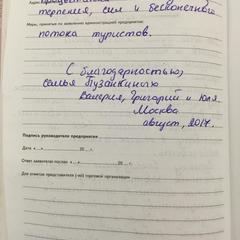 терпения, сил и бесконечного
Меры, принятые по заявлению администрацией предприятия:
потока туристов.
С благодарностью,
семья Пузанкиных
Валерия, Григорий и Юля.
Москва
август, 2017.
Подпись руководителя предприятия
Дата « » 20 г.
Ответ заявителю послан « » 20 г.
Для отметок представителя (-ей) торговой организации